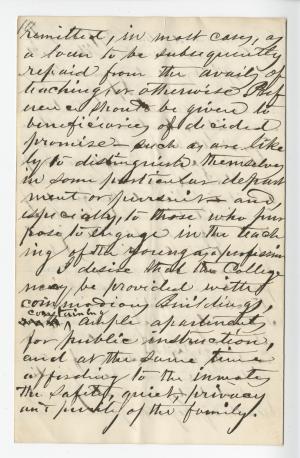 remitted, in most cases, as
a loan to be subsequently
repaid from the avails of
teaching or otherwise. Pref
erence should be given to
beneficiaries of decided
promise – such as are like
ly to distinguish themselves
in some particular depart
ment or pursuit – and,
especially, to those who pur
pose to engage in the teach
ing of the young as a profession
I desire that the College
may be provided with
commodious Buildings,
containing
ample apartments
for public instruction,
and at the same time
affording to the inmates
the safety, quiet, privacy
and purity of the family.